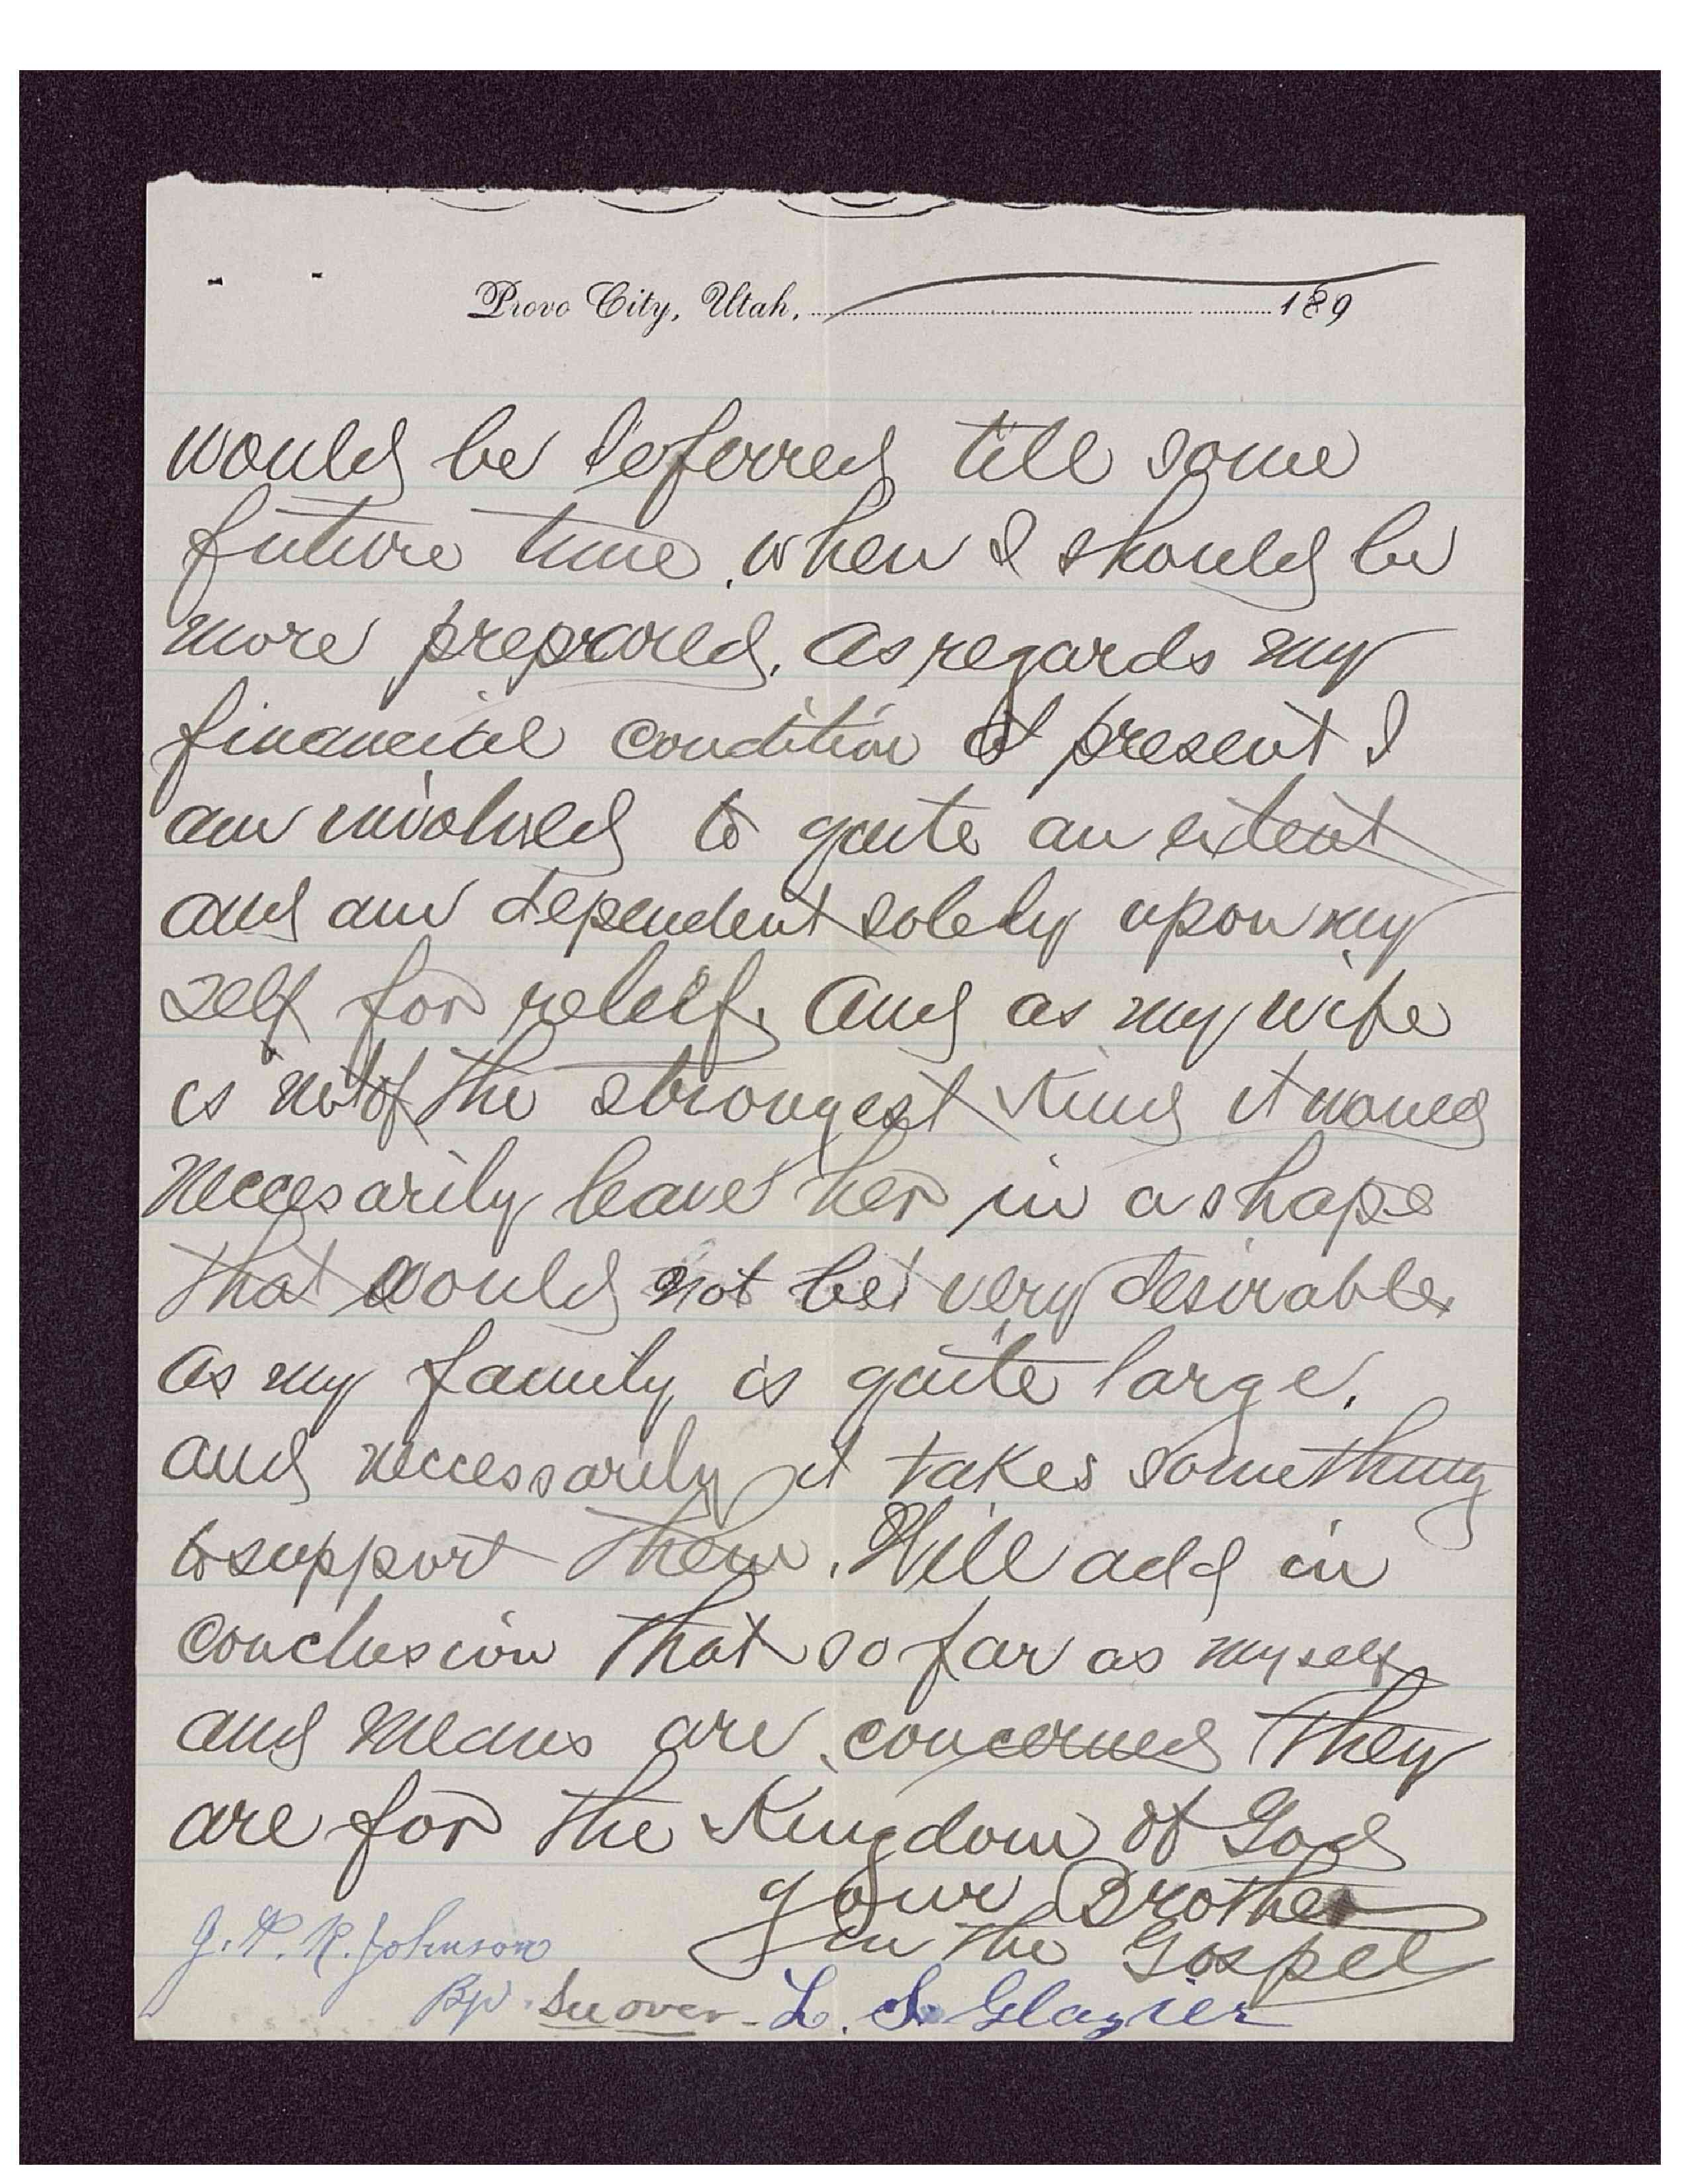 Provo City, Utah, 189
would be deferred till some
future time. when I should be
more prepared. as regards my
financial condition at present I
am involved to quite an extent
and am dependent solely upon my
self for releif. And as my wife
is not of the strongest kind it would
neccesarily leave her in a shape
that would not be very desirable
as my family is quite large.
and neccessarily it takes something
to support them. Will add in
conclusion that so far as myself
and means are concerned they
are for the Kingdom of God
your Brother
in the Gospel
J. P. R. Johnson
Bp. See over - L. S. Glazier